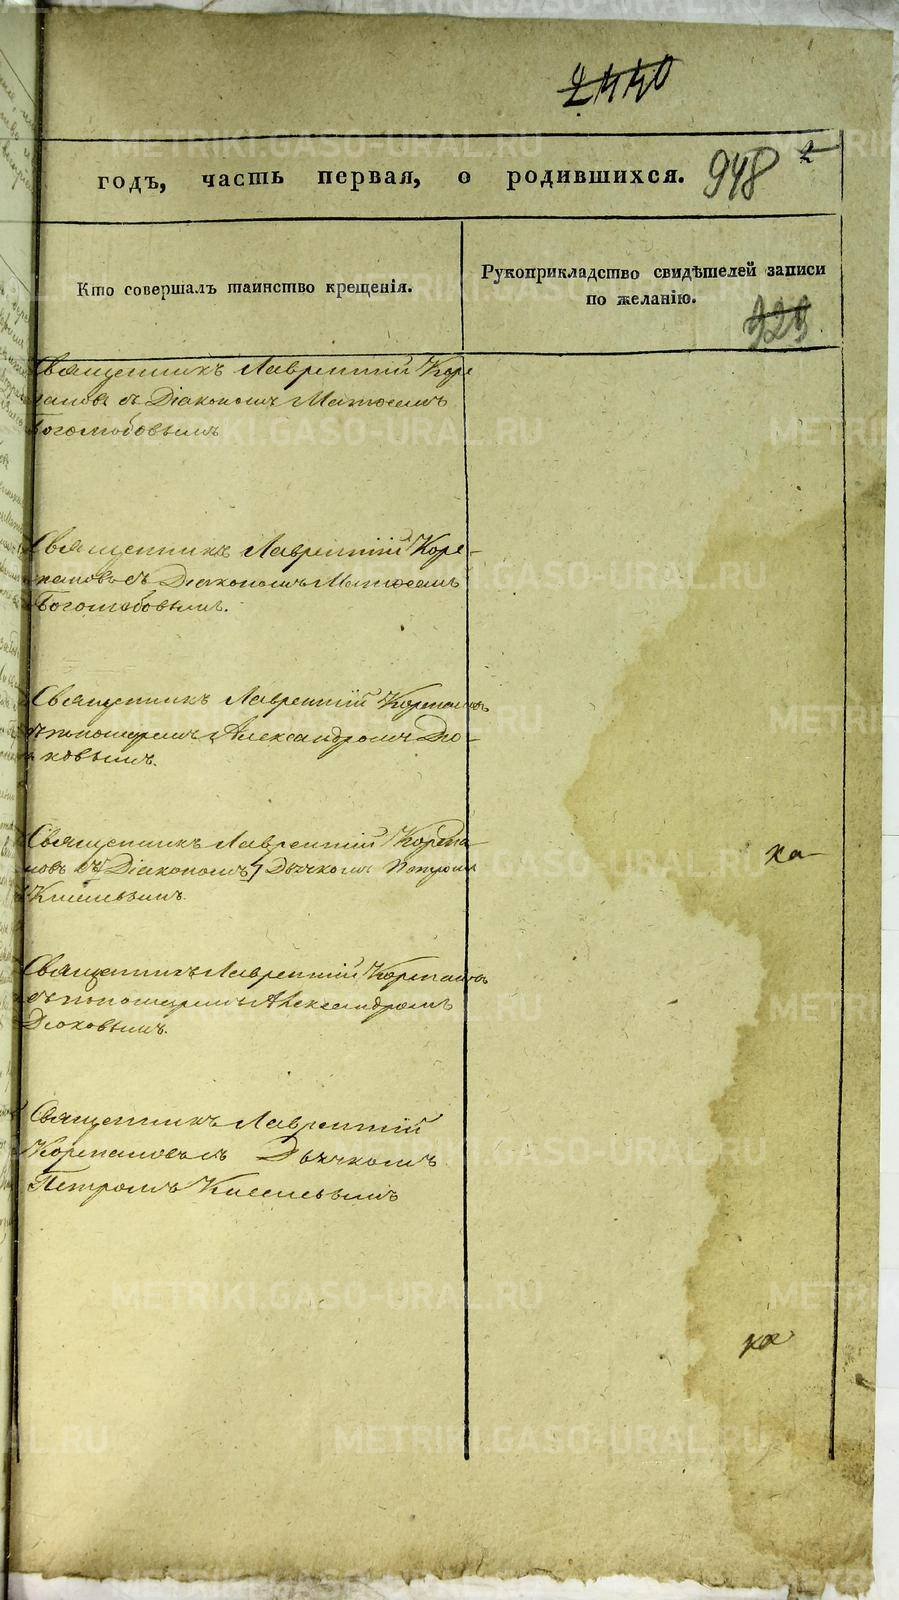 2440
годъ, часть первая, о родившихся.
948
2
Кто совершалъ таинство крещенія.
Рукоприкладство свидѣтелей записи
по желанію.
929
Священникъ Лаврентій Коре
пановъ съ Діакономъ Матѳеемъ
Боголюбовымъ
Священникъ Лаврентій Коре-
пановъ съ Діакономъ Матѳеемъ
Боголюбовымъ.
Священникъ Лаврентій Корепановъ
съ пономаремъ Александромъ Дю-
ковымъ.
Священникъ Лаврентій Корепа-
новъ съ Діакономъ Дьячкомъ Петромъ
Киселевымъ.
ка
Священникъ Лаврентій Корепановъ
съ пономаремъ Александромъ
Дюковымъ.
Священникъ Лаврентій
Корепановъ съ Дьячкомъ
Петромъ Киселевымъ
ка
METRIKI.GASO-URAL.RU